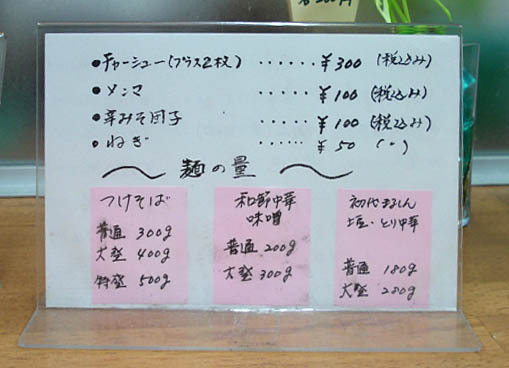 •チャーシュー(プラス2枚) ······ ¥300 (税込み)
•メンマ ······ ¥100 (税込み)
•辛みそ団子 ······ ¥100 (税込み)
•ねぎ ······ ¥50 (〃)
〜 麺の量 〜
つけそば
普通 300g
大盛 400g
特盛 500g
和節中華
味噌
普通 200g
大盛 300g
初代
塩・とり中華
普通 180g
大盛 280g